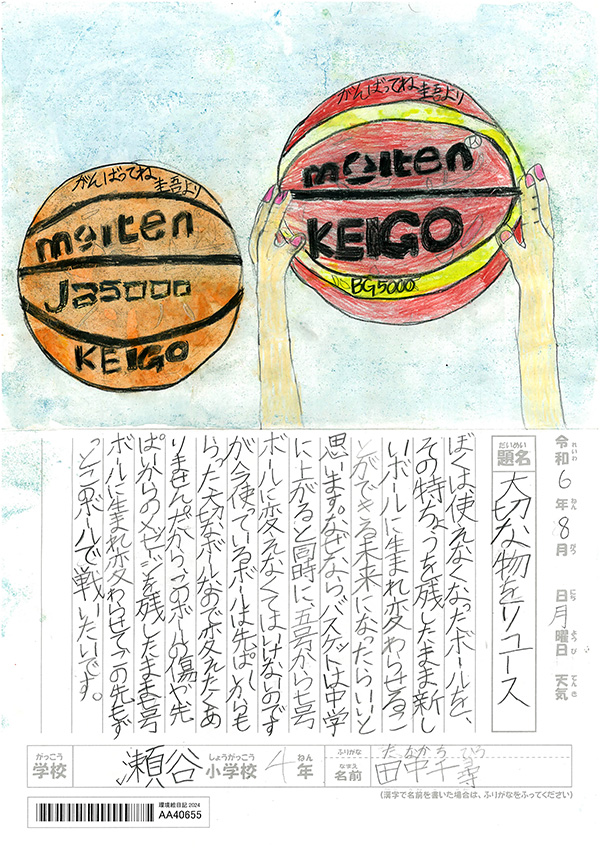 がんばってね
圭吾より
molten
JB5000
KEIGO
がんばってね 圭吾より
molten
KEIGO
BG5000
れいわ ねん がつ にち ようび てんき
令和6年8月 日月曜日 天気
だいめい
題名 大切な物をリユース
ぼくは使えなくなったボールを、
その特ちょうを残したまま新し
いボールに生まれ変わらせるこ
とができる未来になったらいいと
思います。なぜなら、バスケットは中学
に上がると同時に、五号から七号
ボールに変えなくてはいけないのです
が今使っているボールは先ぱいからも
らった大切なボールなので変えたくあ
りません。だから、このボールの傷や先
ぱいからのメッセージを残したまま七号
ボールに生まれ変わらせてこの先もず
っとこのボールで戦いたいです。
がっこう しょうがっこう ねん
学校 瀬谷 小学校 4年
ふりがな たなかち ひろ
なまえ
名前 田中千尋
(漢字で名前を書いた場合は、ふりがなをふってください)
環境絵日記 2024
AA40655